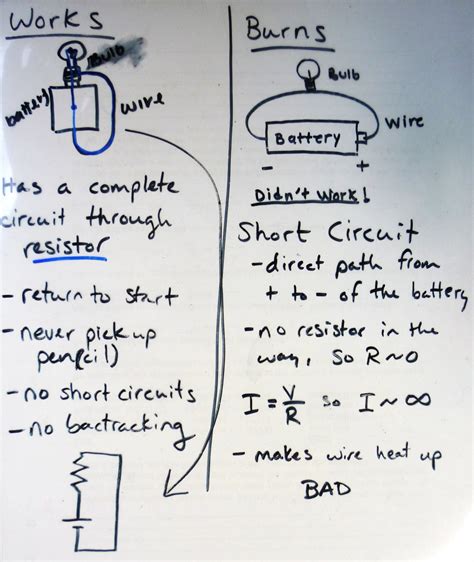 Works
Bulb
battery
wire
Has a complete
circuit through
resistor
- return to start
- never pick up
pen(cil)
- no short circuits
- no bactracking
Burns
Bulb
Battery
wire
- +
Didn't work!
Short Circuit
- direct path from
+ to - of the battery
- no resistor in the
way, so R~0
I = V/R so I ~ ∞
- makes wire heat up
BAD